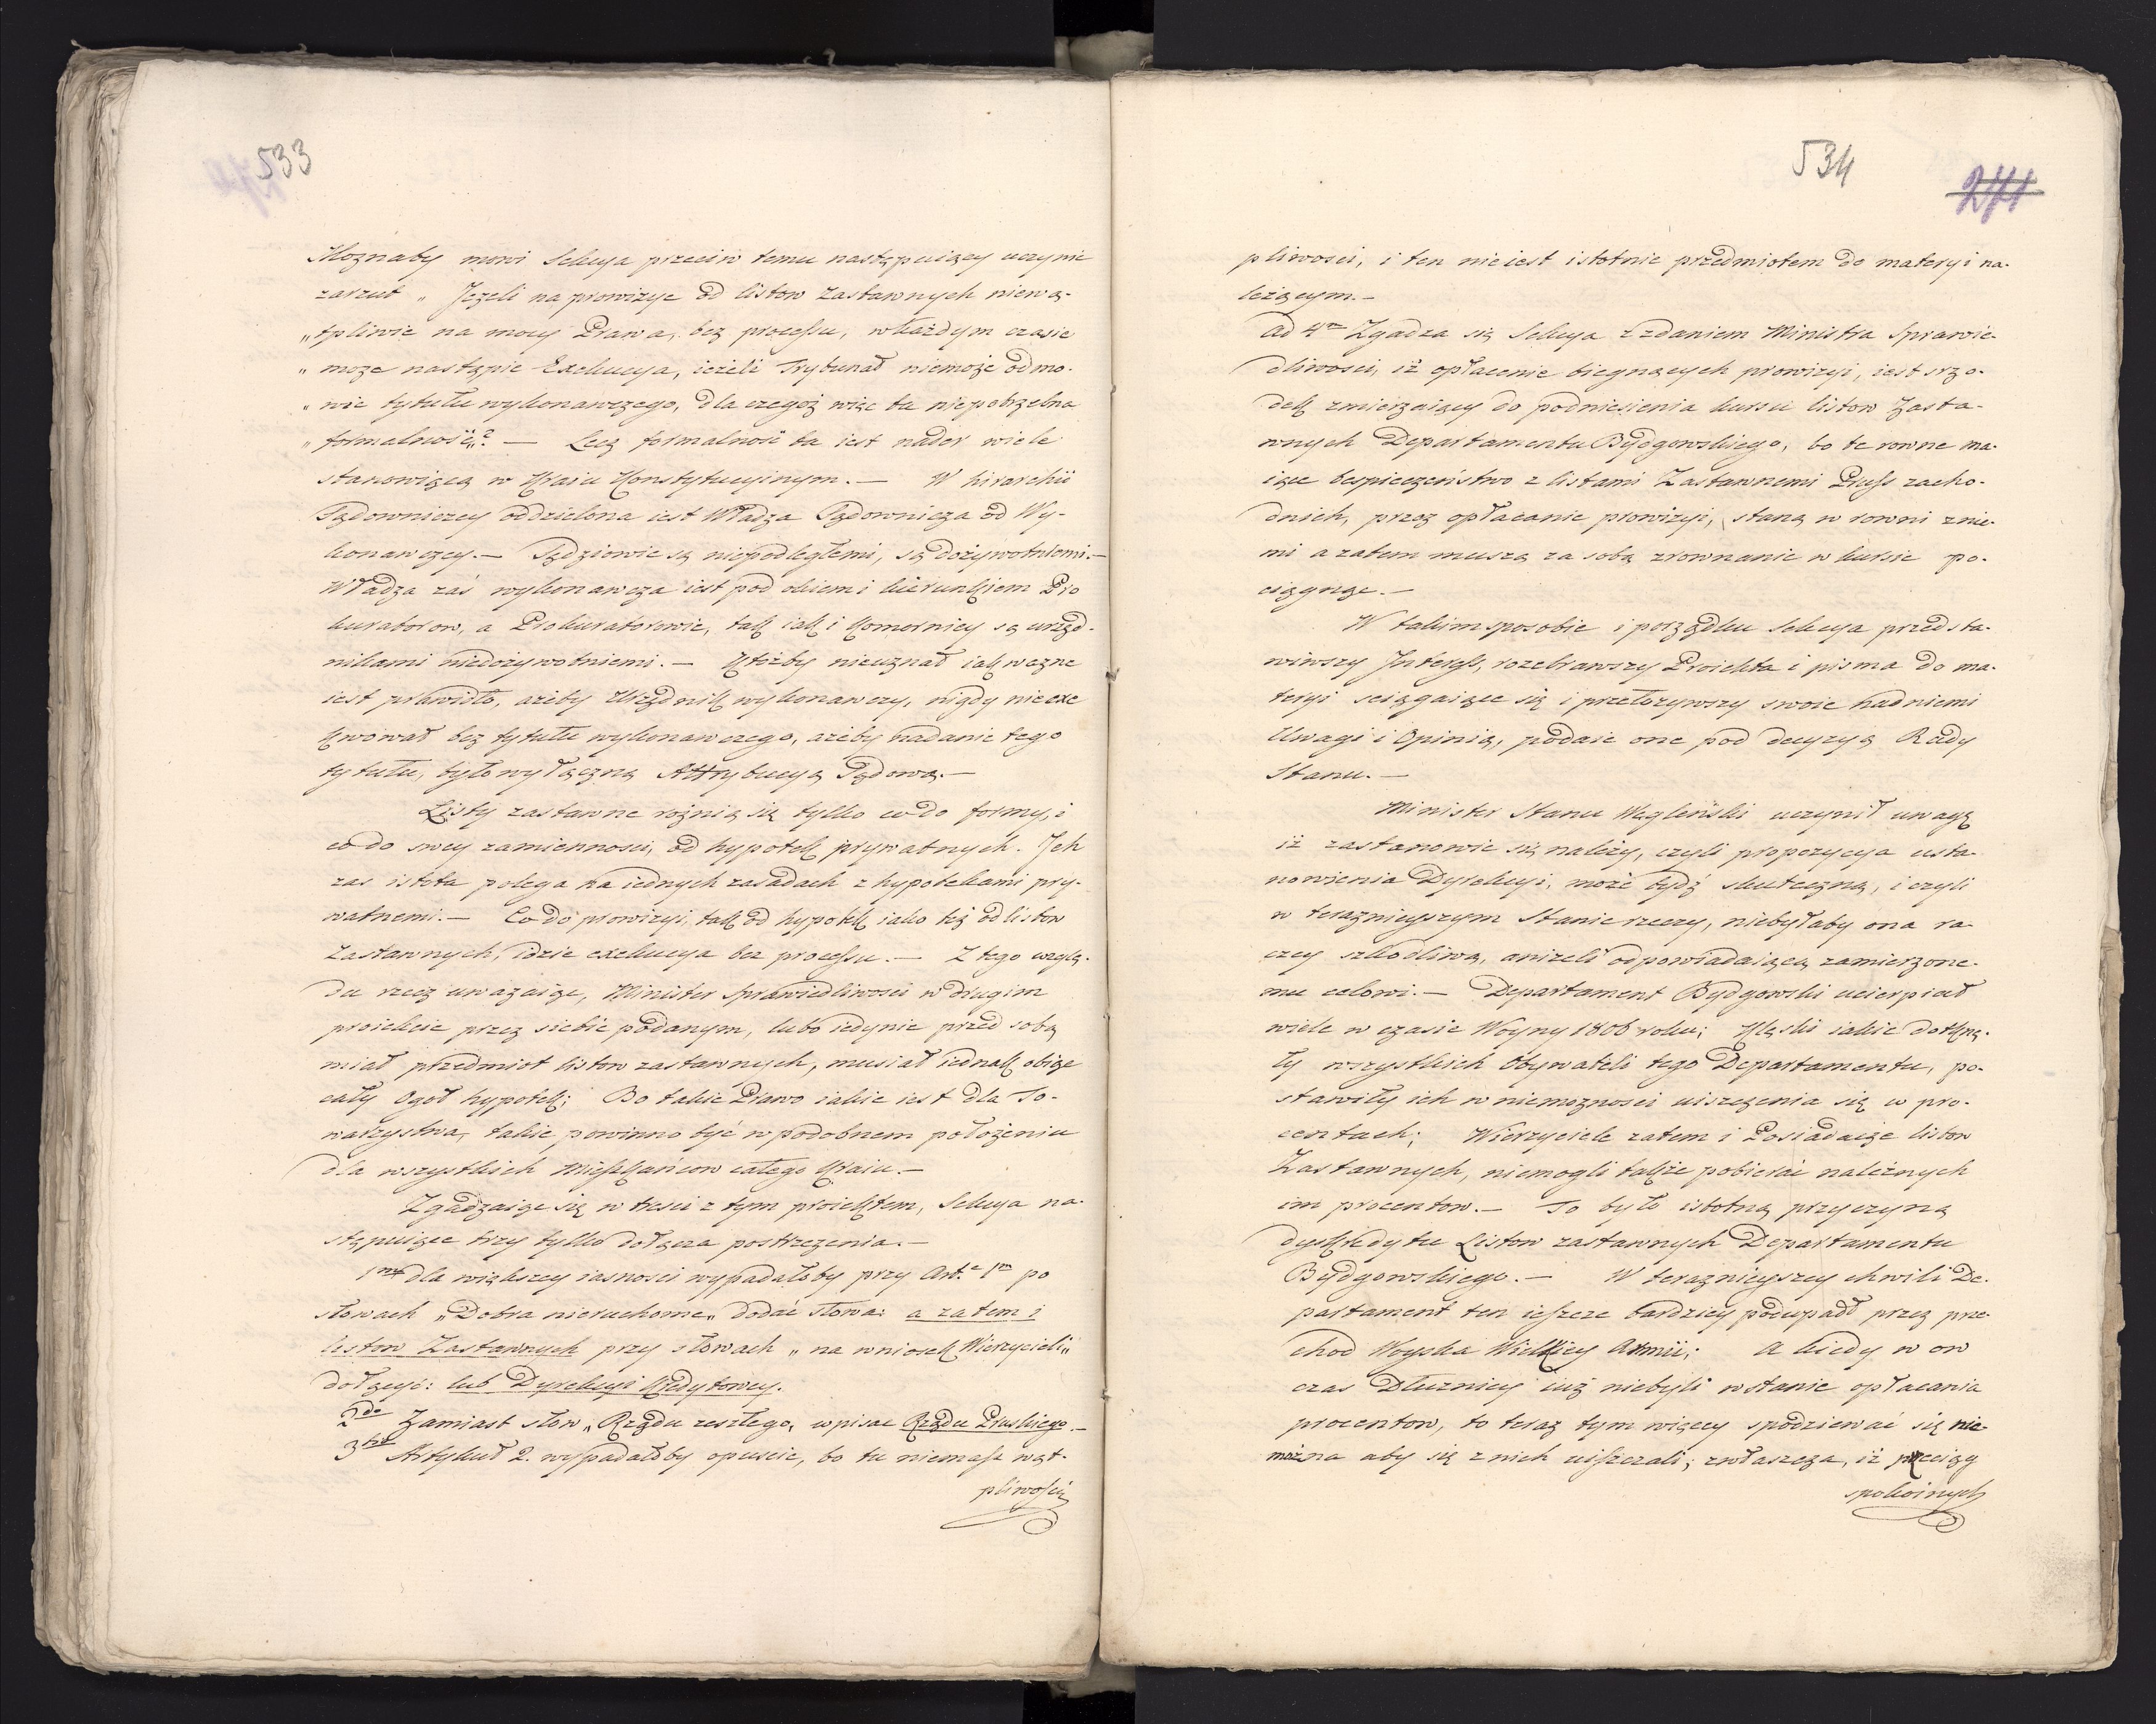 533
Możnaby mowi Sekcya przeciw temu następuiący uczynic
zarzut „ Jeżeli na prowizye od listow zastawnych niewą-
„tpliwie na mocy Prawa, bez processu, wkażdym czasie
„ moze nastąpic Exekucya, ieżeli Trybunał niemoże odmo-
„ wic tytułu wykonawczego, dla czegoż więc ta niepotrzebna
„ formalność„? — Lecz formalność ta iest nader wiele
stanowiącą w Kraiu Konstytucyinym. — W hirarchii
Sądowniczey oddzielona iest Władza Sądownicza od Wy-
konawczey. — Sędziowie są niepodległemi, są dożywotniemi. —
Władza zaś wykonawcza iest pod okiem i kierunkiem Pro
kuratorow, a Prokuratorowie, tak iak i Komornicy są urzęd-
nikami niedożywotniemi. — Któżby nieuznał iak wazne
iest prawidło, ażeby Urzędnik wykonawczy, nigdy nie exe
kwował bez tytułu wykonawczego, ażeby nadanie tego
tytułu, było wyłączną Attrybucyą Sądową. —
Listy zastawne rożnią się tylko co do formy, i
co do swey zamiennosci, od hypotek prywatnych. Jch
zas istota polega na iednych zasadach z hypotekami pry-
watnemi. — Co do prowizyi, tak od hypotek iako też od listow
Zastawnych, idzie exekucya bez processu. — Z tego wzglę-
du rzecz uwazaiąc, Minister Sprawiedliwosci w drugim
proiekcie przez siebie podanym, lubo iedynie przed sobą
miał przedmiot listow zastawnych, musiał iednak obiąc
cały Ogoł hypotek; Bo takie Prawo iakie iest dla To-
warzystwa, takie powinno być w podobnem położeniu
dla wszystkich Mieszkańcow całego Kraiu. —
Zgadzaiąc się w tresci z tym proiektem, Sekcya na-
stępuiące trzy tylko dołącza postrzeżenia. —
1mo dla większey iasnosci wypadałoby przy Art.e 1m po
słowach „Dobra nieruchome„ dodać słowa: a zatem i
listow Zastawnych przy słowach „ na wniosek Wierzycieli„
dołączyć: lub Dyrekcyi Kredytowey.
2do Zamiast słow „Rządu zeszłego„ wpisac Rządu Pruskiego. —
3tio Artykuł 2. wypadałoby opuscic, bo tu niemasz wąt-
pliwości
534
271
pliwosci, i ten nie iest istotnie przedmiotem do materyi na-
leżącym. —
Ad 4m Zgadza się Sekcya z zdaniem Ministra Sprawie-
dliwosci, iż opłacenie biegnących prowizyi, iest srzo-
dek zmierzaiący do podniesienia kursu listow Zasta-
wnych Departamentu Bydgowskiego, bo te rowne ma-
iąc bespieczeństwo z listami Zastawnemi Pruss zacho-
dnich, przez opłacanie prowizyi, staną w rowni z nie-
mi a zatem muszą za sobą zrownanie w kursie po-
ciągnąc. —
W takim sposobie i porządku Sekcya przedsta-
wiwszy Jnteress, rozebrawszy Proiekta i pisma do ma-
teryi sciągaiące się i przełożywszy swoie nad niemi
Uwagi i Opinią, podaie one pod decyzyą Rady
Stanu. —
Minister Stanu Węgleński uczynił uwagę
iż zastanowic się należy, czyli propozycya usta-
nowienia Dyrekcyi, może bydź skuteczną, i czyli
w teraznieyszym Stanie rzeczy, niebyłaby ona ra-
czey szkodliwą, aniżeli odpowiadaiącą zamierzone-
mu celowi. — Departament Bydgowski ucierpiał
wiele w czasie Woyny 1806 roku; Klęski iakie dotknę-
ły wszystkich Obywateli tego Departamentu, po-
stawiły ich w niemożnosci uiszczenia się w pro-
centach; Wierzyciele zatem i Posiadacze listow
Zastawnych, niemogli także pobierać należnych
im procentow. — To było istotną przyczyną
dyskredytu Listow zastawnych Departamentu
Bydgowskiego. — W teraznieyszey chwili De-
partament ten ieszcze bardziey podupadł przez prze-
chod Woyska Wielkiey Armii; A kiedy w ow
czas Dłużnicy iuż niebyli w stanie opłacania
procentow, to teraz tym więcey spodziewać się nie-
można aby się z nich uiszczali; zwłaszcza, iż przeciąg
spokoinych